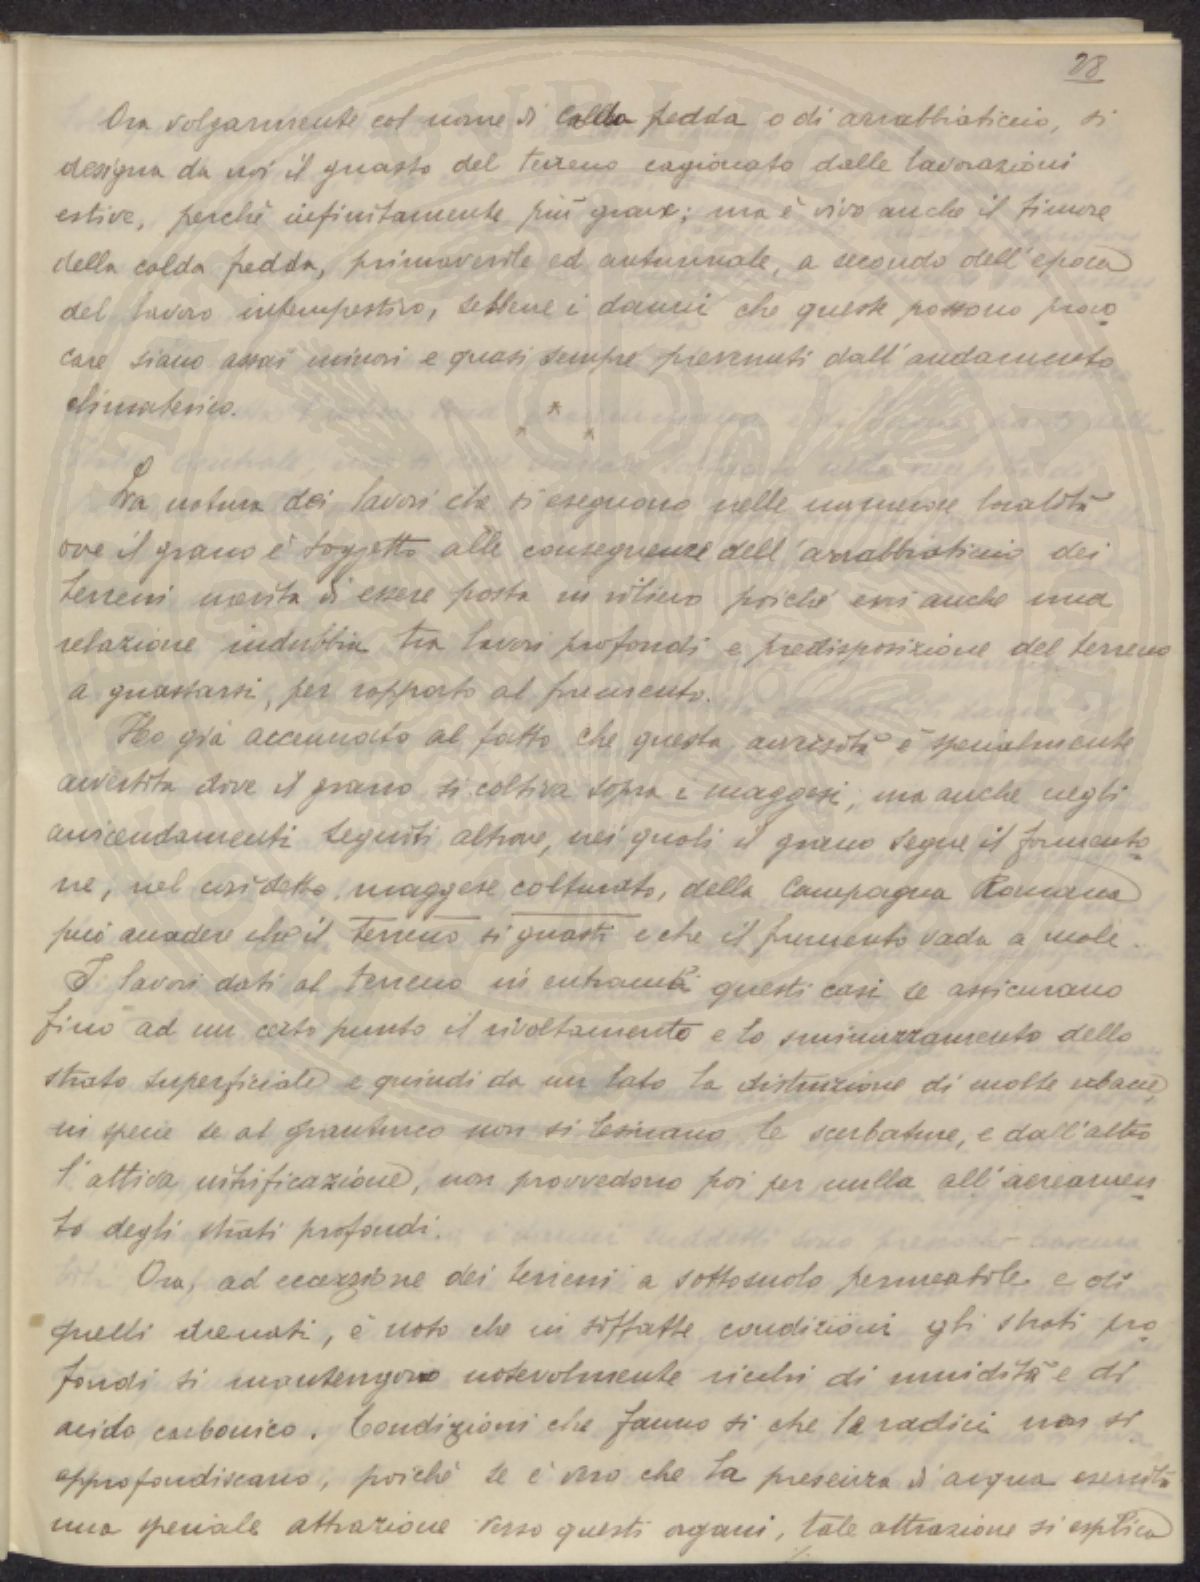 28
Ora volgarmente col nome di calda fedda o di arrabbiaticcio, si
designa da noi il guasto del terreno cagionato dalle lavorazioni
estive, perchè infinitamente più grave; ma è vivo anche il timore
della calda fedda, primaverile ed autunnale, a secondo dell'epoca
del lavoro intempestivo, sebbene i danni che queste possono provo
care siano assai minori e quasi sempre prevenuti dall'andamento
climaterico.
* * *
La natura dei lavori che si eseguono nelle numerose località
ove il grano è soggetto alle conseguenze dell'arrabbiaticcio dei
terreni merita di essere posta in rilievo poichè evvi anche una
relazione indubbia tra lavori profondi e predisposizione del terreno
a guastarsi, per rapporto al frumento.
Ho già accennato al fatto che questa avversità è specialmente
avvertita dove il grano si coltiva sopra i maggesi; ma anche negli
avvicendamenti seguiti altrove, nei quali il grano segue il formento
ne, nel cosidetto maggese colturato, della Campagna Romana
può accadere che il terreno si guasti e che il frumento vada a male.
I lavori dati al terreno in entrambi questi casi se assicurano
fino ad un certo punto il rivoltamento e lo sminuzzamento dello
strato superficiale e quindi da un lato la distruzione di molte erbacce,
in specie se al granturco non si lesinano le scerbature, e dall'altro
l'attiva nitrificazione, non provvedono poi per nulla all'aereamen
to degli strati profondi.
Ora, ad eccezione dei terreni a sottosuolo permeabile e di
quelli drenati, è noto che in siffatte condizioni gli strati pro
fondi si mantengono notevolmente ricchi di umidità e di
acido carbonico. Condizioni che fanno si che le radici non si
approfondiscano, poichè se è vero che la presenza d'acqua esercita
una speciale attrazione verso questi organi, tale attrazione si esplica